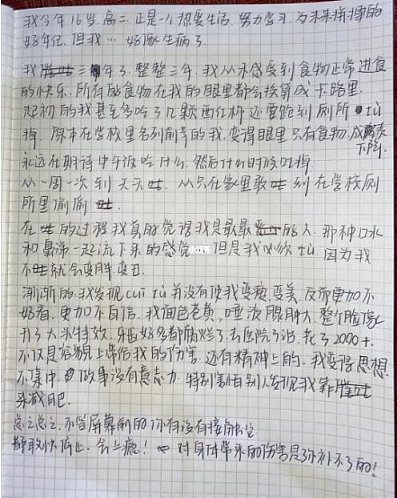 我今年16岁,高二,正是一个热爱生活,努力学习,为未来拼搏的
好年纪,但我…好像生病了
我 三年了,整整三年,我从未感受到食物正常进食
的快乐,所有的食物在我的眼里都会换算成卡路里,
起初的我甚至多吃了几颗西红柿还要跑到厕所 tù
掉,原本在学校里名列前茅的我,变得眼里只有食物,成绩
下降,
永远在期待中午饭吃什么,然后什么时候吐掉
从一周一次到天天吐,从只在家里敢吐到在学校厕
所里偷偷吐
在吐的过程我真的觉得我是最最 的人,那种口水
和鼻涕一起流下来的感觉……但是我必须tù 因为我
不吐就会变胖变丑
渐渐的,我发现cuī tù并没有使我变瘦变美,反而更加不
好看,更加不自信,我面色苍黄,唾液腺肿大,整个脸像
开了大头特效,牙齿好多都腐烂了去医院了治,花了2000+,
不仅是容貌上带给我的伤害,还有精神上的,我变得思想
不集中,做事没有意志力,特别害怕别人发现我靠催吐
来减肥,
总之总之,不管屏幕前的你有没有接触它
都敢快停止,会上瘾! 对身体带来的伤害是弥补不了的!